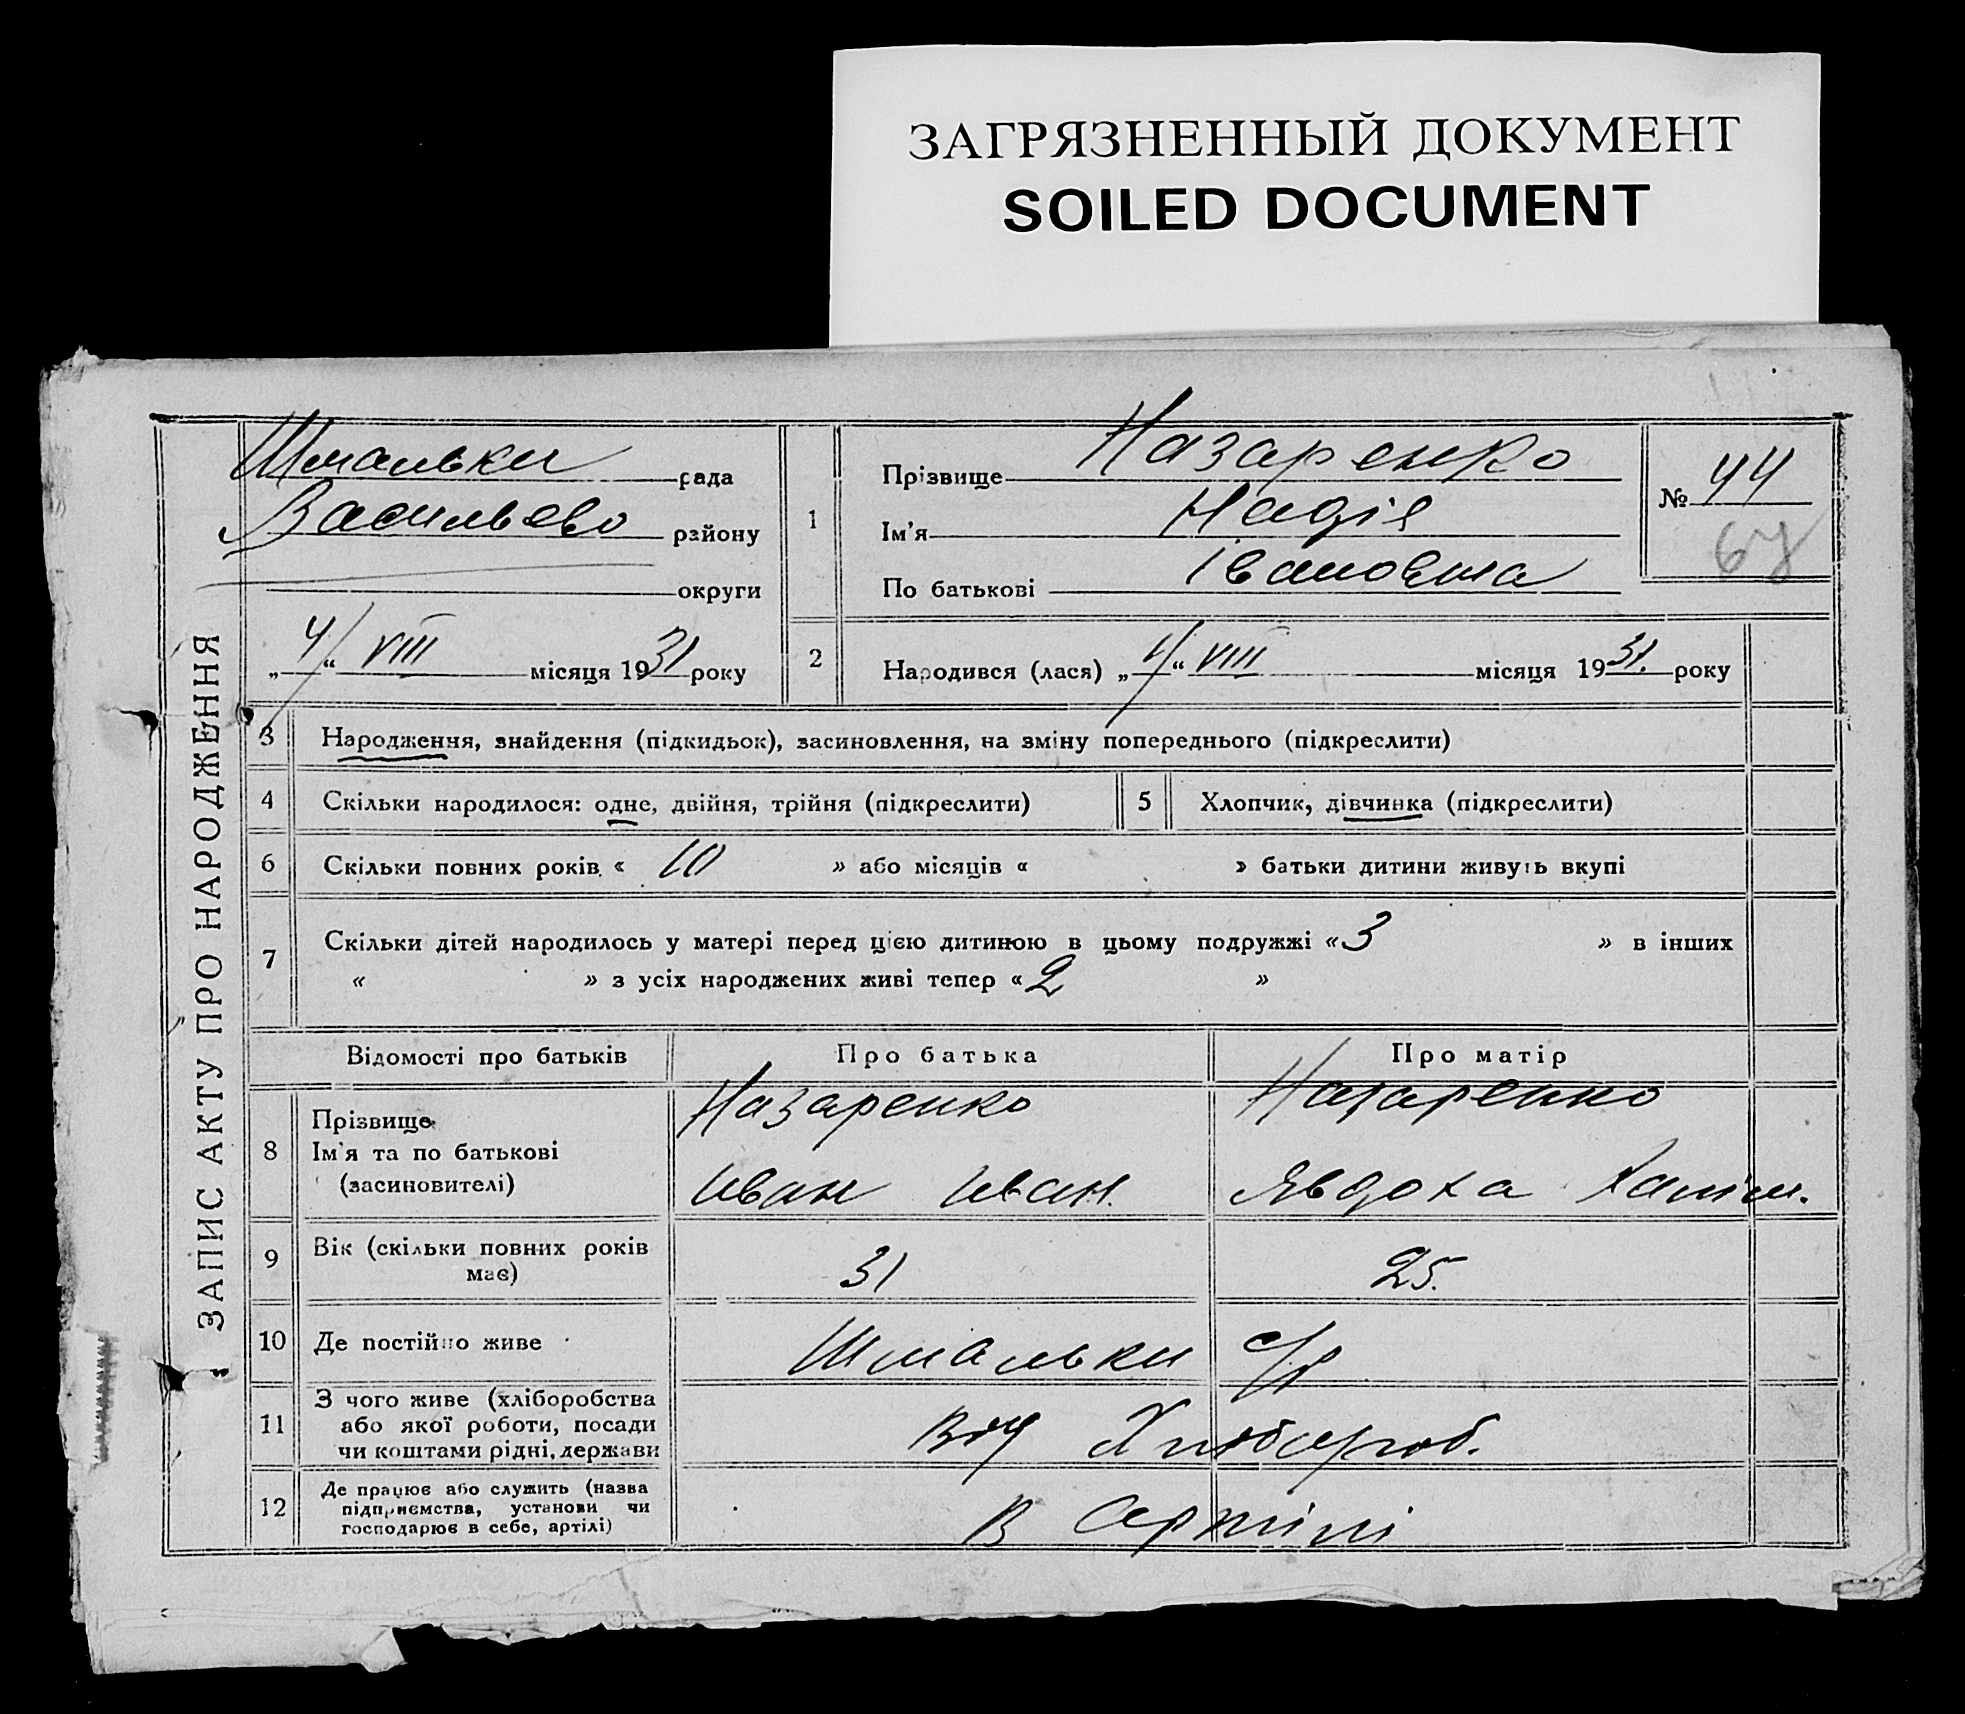 ЗАГРЯЗНЕННЫЙ ДОКУМЕНТ
SOILED DOCUMENT
ЗАПИС АКТУ ПРО НАРОДЖЕННЯ
Шмальки рада
Васильево району
округи
„4“ VIII місяця 1931 року
1
Прізвище Назаренко
Ім'я Надія
По батькові Івановна
№ 44
67
2
Народився (лася) „4“ VIII місяця 1931. року
3 Народження, знайдення (підкидьок), засиновлення, на зміну попереднього (підкреслити)
4 Скільки народилося: одне, двійня, трійня (підкреслити) 5 Хлопчик, дівчинка (підкреслити)
6 Скільки повних років « 10 » або місяців « » батьки дитини живуть вкупі
7 Скільки дітей народилось у матері перед цією дитиною в цьому подружжі « 3 » в інших
« » з усіх народжених живі тепер « 2 »
Відомості про батьків Про батька Про матір
8 Прізвище Назаренко Назаренко
Ім'я та по батькові Иван Иван. Явдоха
(засиновителі)
9 Вік (скільки повних років 31 25.
має)
10 Де постійно живе Шмальки с/р
11 З чого живе (хліборобства
або якої роботи, посади від Хлібороб.
чи коштами рідні, держави
12 Де працює або служить (назва
підприємства, установи чи В Артілі
господарює в себе, артілі)